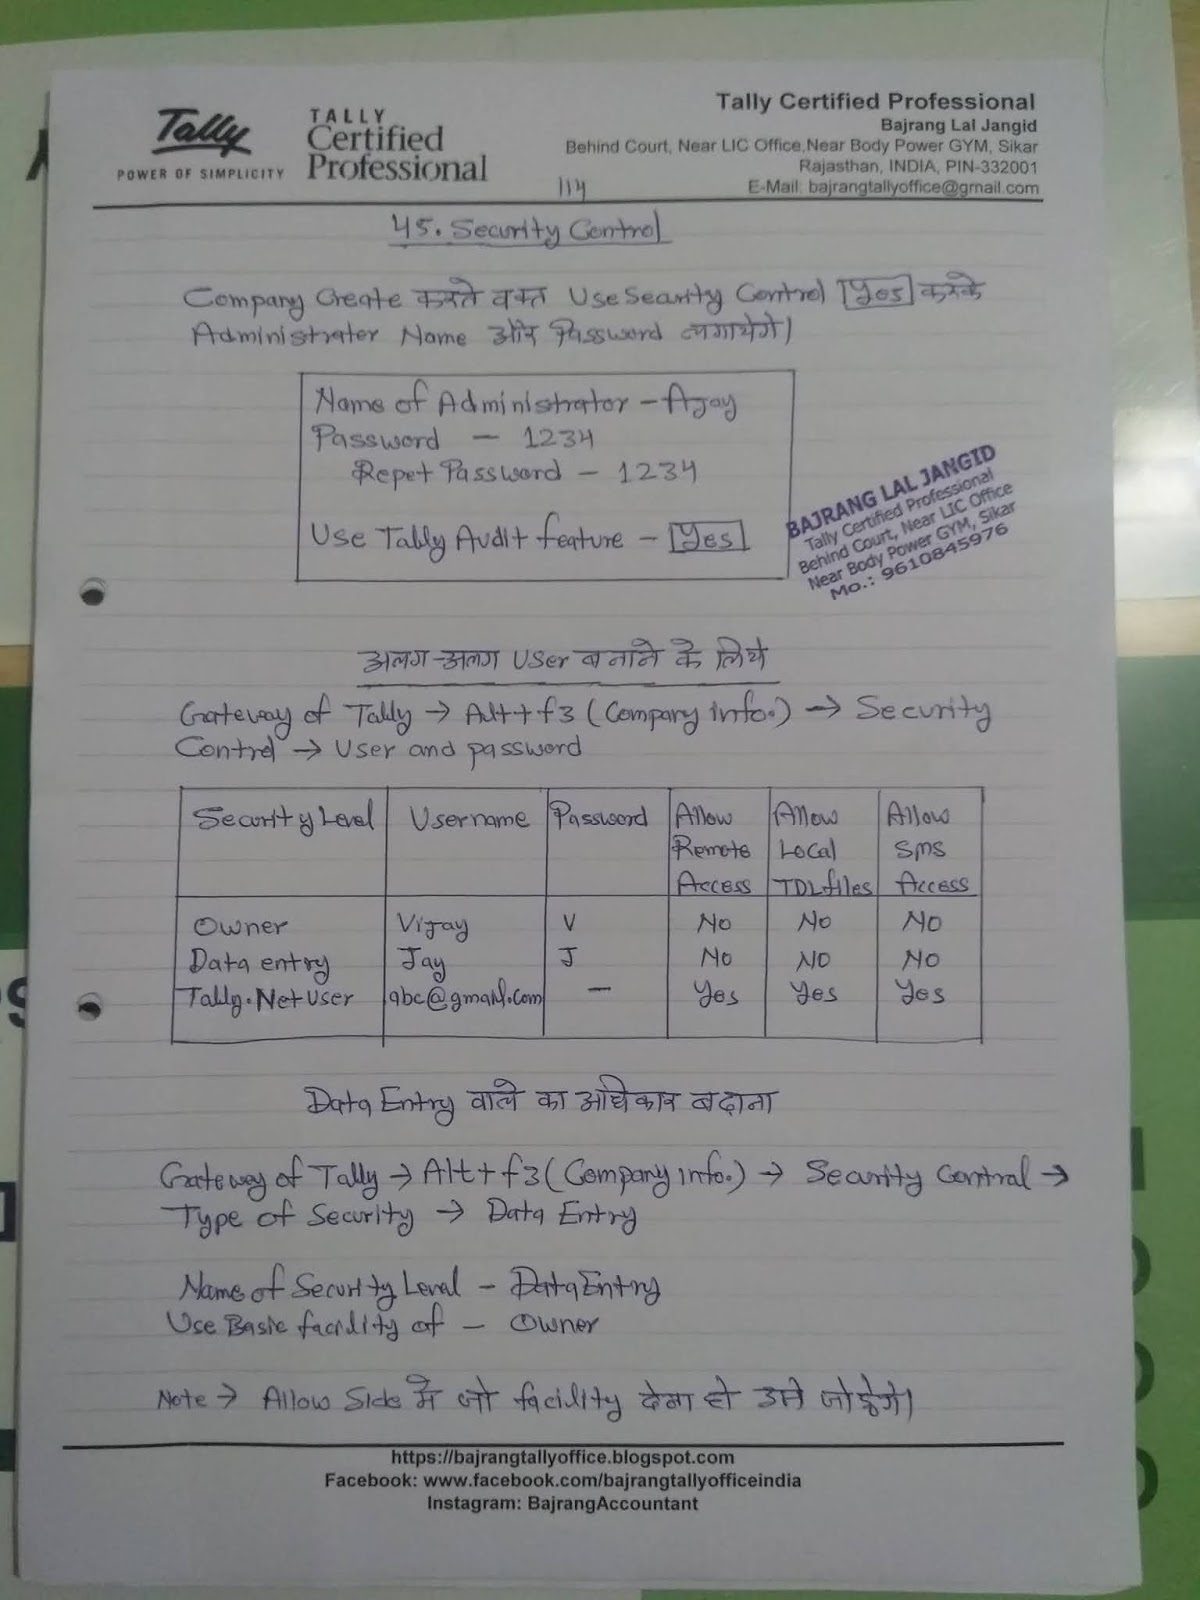 Tally
POWER OF SIMPLICITY
TALLY
Certified
Professional
Tally Certified Professional
Bajrang Lal Jangid
Behind Court, Near LIC Office,Near Body Power GYM, Sikar
Rajasthan, INDIA, PIN-332001
E-Mail: bajrangtallyoffice@gmail.com
114
45. Security Control
Company Create करते वक्त Use Security Control Yes करके
Administrator Name और Password लगायेगे।
Name of Administrator - Ajay
Password - 1234
Repet Password - 1234
Use Tally Audit feature - Yes
BAJRANG LAL JANGID
Tally Certified Professional
Behind Court, Near LIC Office
Near Body Power GYM, Sikar
Mo.: 9610845976
अलग-अलग User बनाने के लिये
Gateway of Tally → Alt+f3 (Company info.) → Security
Control → User and password
Security Level Username Password Allow Remote Access Allow Local TDL files Allow SMS Access
Owner Vijay V No No No
Data entry Jay J No No No
Tally.Net User abc@gmail.com - Yes Yes Yes
Data Entry वाले का अधिकार बढाना
Gateway of Tally → Alt+f3 (Company info.) → Security Control →
Type of Security → Data Entry
Name of Security Level - Data Entry
Use Basic facility of - Owner
Note → Allow Side मे जो facility देना हो उसे जोडेगे।
https://bajrangtallyoffice.blogspot.com
Facebook: www.facebook.com/bajrangtallyofficeindia
Instagram: BajrangAccountant